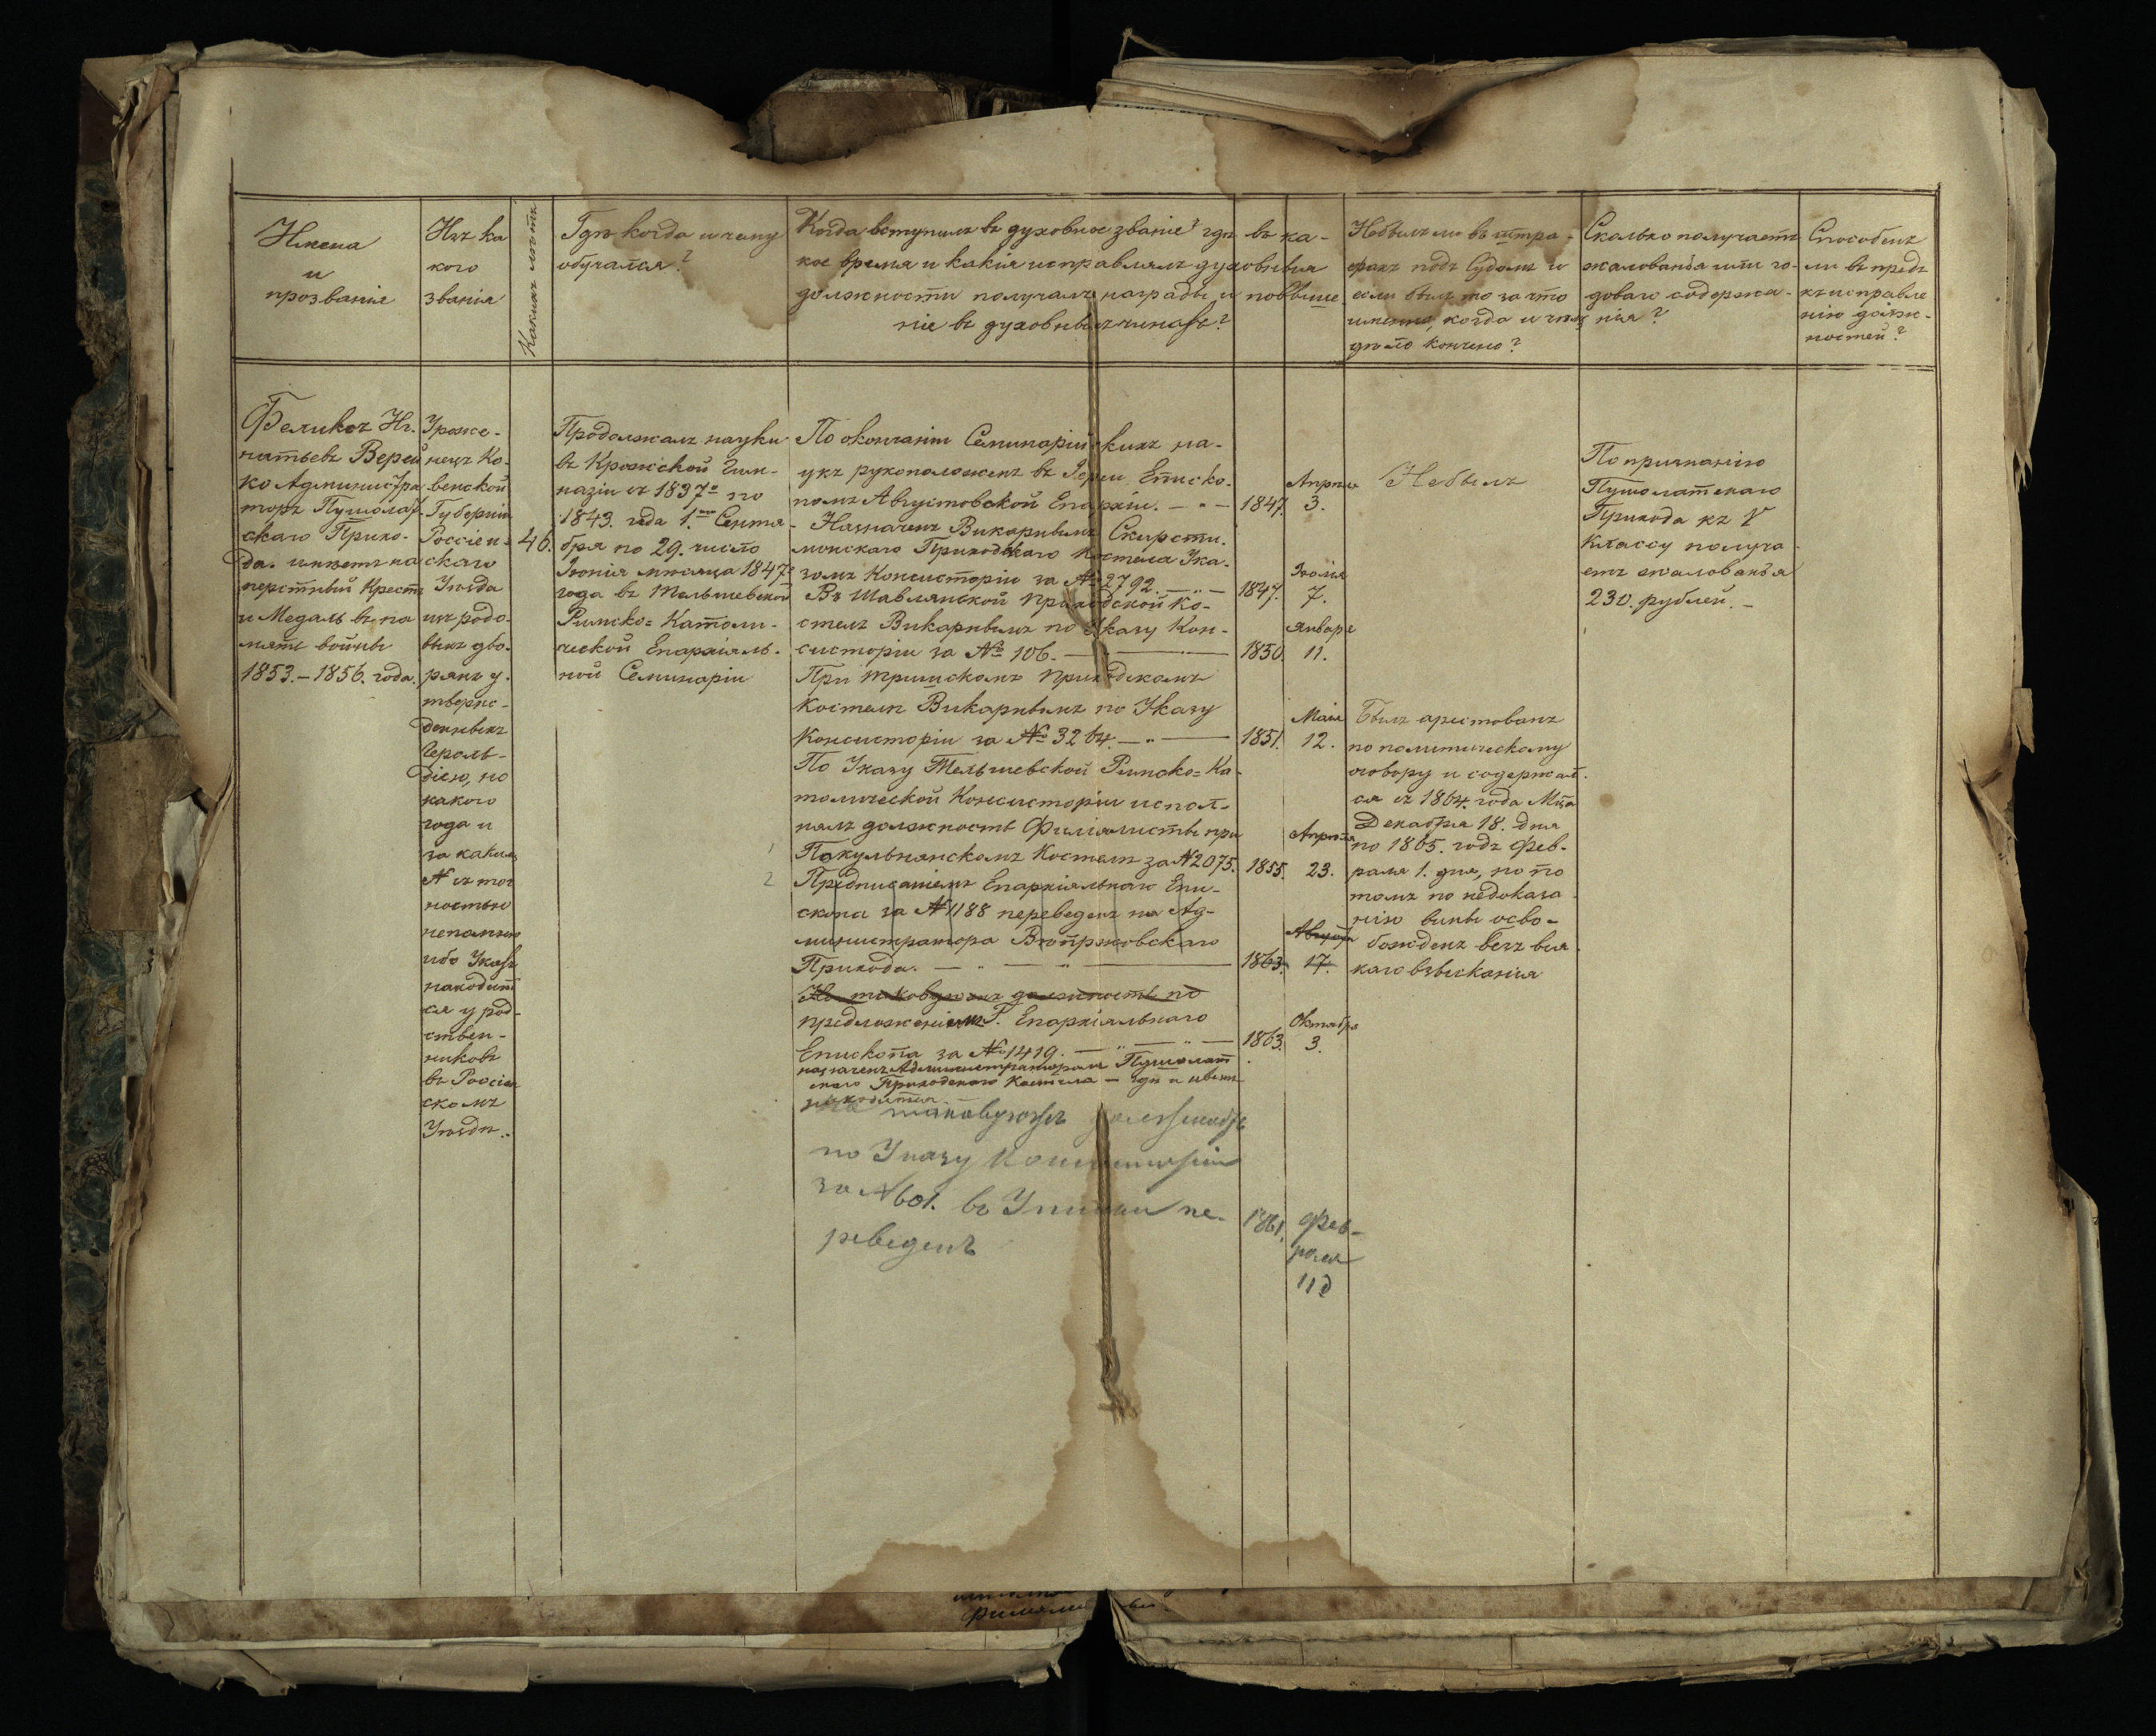 Имена
и
прозванія
Изъ ка
кого
званія
Какихъ лѣтъ
Гдѣ когда и чему
обучался?
Когда вступилъ въ духовное званіе? гдѣ въ ка-
кое время и какія исправлялъ духовныя
должности получалъ награды, и повыше
ніе въ духовныхъ чинахъ?
Небылъ ли въ штра-
фахъ подъ Судомъ и
если былъ то за что
именно, когда и чемъ
дѣло кончено?
Сколько получаетъ
жалованья или го-
доваго содержа-
нія?
Способенъ
ли въ предъ
къ исправле
нію долж-
ностей?
Феликсъ Иг.
натьевъ Верей
ко Администра
торъ Пушолат
скаго Прихо-
да. имѣетъ на
перстный Крестъ
и Медаль въ па
мять войны
1853.-1856. года.
Уроже-
нецъ Ко-
венской
Губерніи
Россіен-
скаго
Уѣзда
изъ родо-
выхъ дво-
рянъ у-
твержс-
денныхъ
Героль-
діею, но
какого
года и
за какимъ
№ съ точ
ностью
непомню
ибо Указъ
находит
ся у род-
ствен-
никовъ
въ Россіен
скомъ
Уѣздѣ.
46.
Продолжалъ науки
въ Крожской Гим-
назіи съ 1837го по
1843. года 1.го Сентя-
бря по 29. число
Іюнія мѣсяца 1847.
года въ Тельшевской
Римско-Католи-
ческой Епархіяль-
ной Семинаріи
По окончаніи Семинарійскихъ на-
укъ рукоположенъ въ Іереи Еписко-
помъ Августовской Епархіи.
1847.
Апрѣля
3.
Назначенъ Викарнымъ Скирсти-
монскаго Приходскаго Костела Ука-
зомъ Консисторіи за № 2792.
1847.
Іюля
7.
Въ Шавлянской приходской Ко-
стелъ Викарнымъ по Указу Кон-
систоріи за № 106.
1850.
Января
11.
При Тришскомъ приходскомъ
Костелѣ Викарнымъ по Указу
Консисторіи за № 3264.
1851.
Маія
12.
По Указу Тельшевской Римско-Ка-
толической Консисторіи испол-
нялъ должность Филіялисты при
1 Покульнянскомъ Костелѣ за №2075.
1855.
Апрѣля
23.
2 Предписаніемъ Епархіяльнаго Епи-
скопа за №1188 переведенъ на Ад-
министратора
Прихода.
1863.
Августа
17.
На таковую же должность по
предложенію Г. Епархіяльнаго
Епископа за №1419.
1863.
Октября
3.
назначенъ Администраторомъ Пушолат
скаго Приходскаго Костела - гдѣ и нынѣ
находится.
на таковую же должность
по Указу Консисторіи
за №601. въ пе-
реведенъ
1861.
Фев-
раля
11 д
Небылъ
Былъ арестованъ
по политическому
оговору и содержал-
ся съ 1864. года Мца
Декабря 18. дня
по 1865. годъ Фев-
раля 1. дня, но по
томъ по недоказа
нію вины осво-
божденъ безъ вся
каго взысканія
По признанію
Пушолатскаго
Прихода къ V
Классу получа-
етъ жалованья
230. рублей.